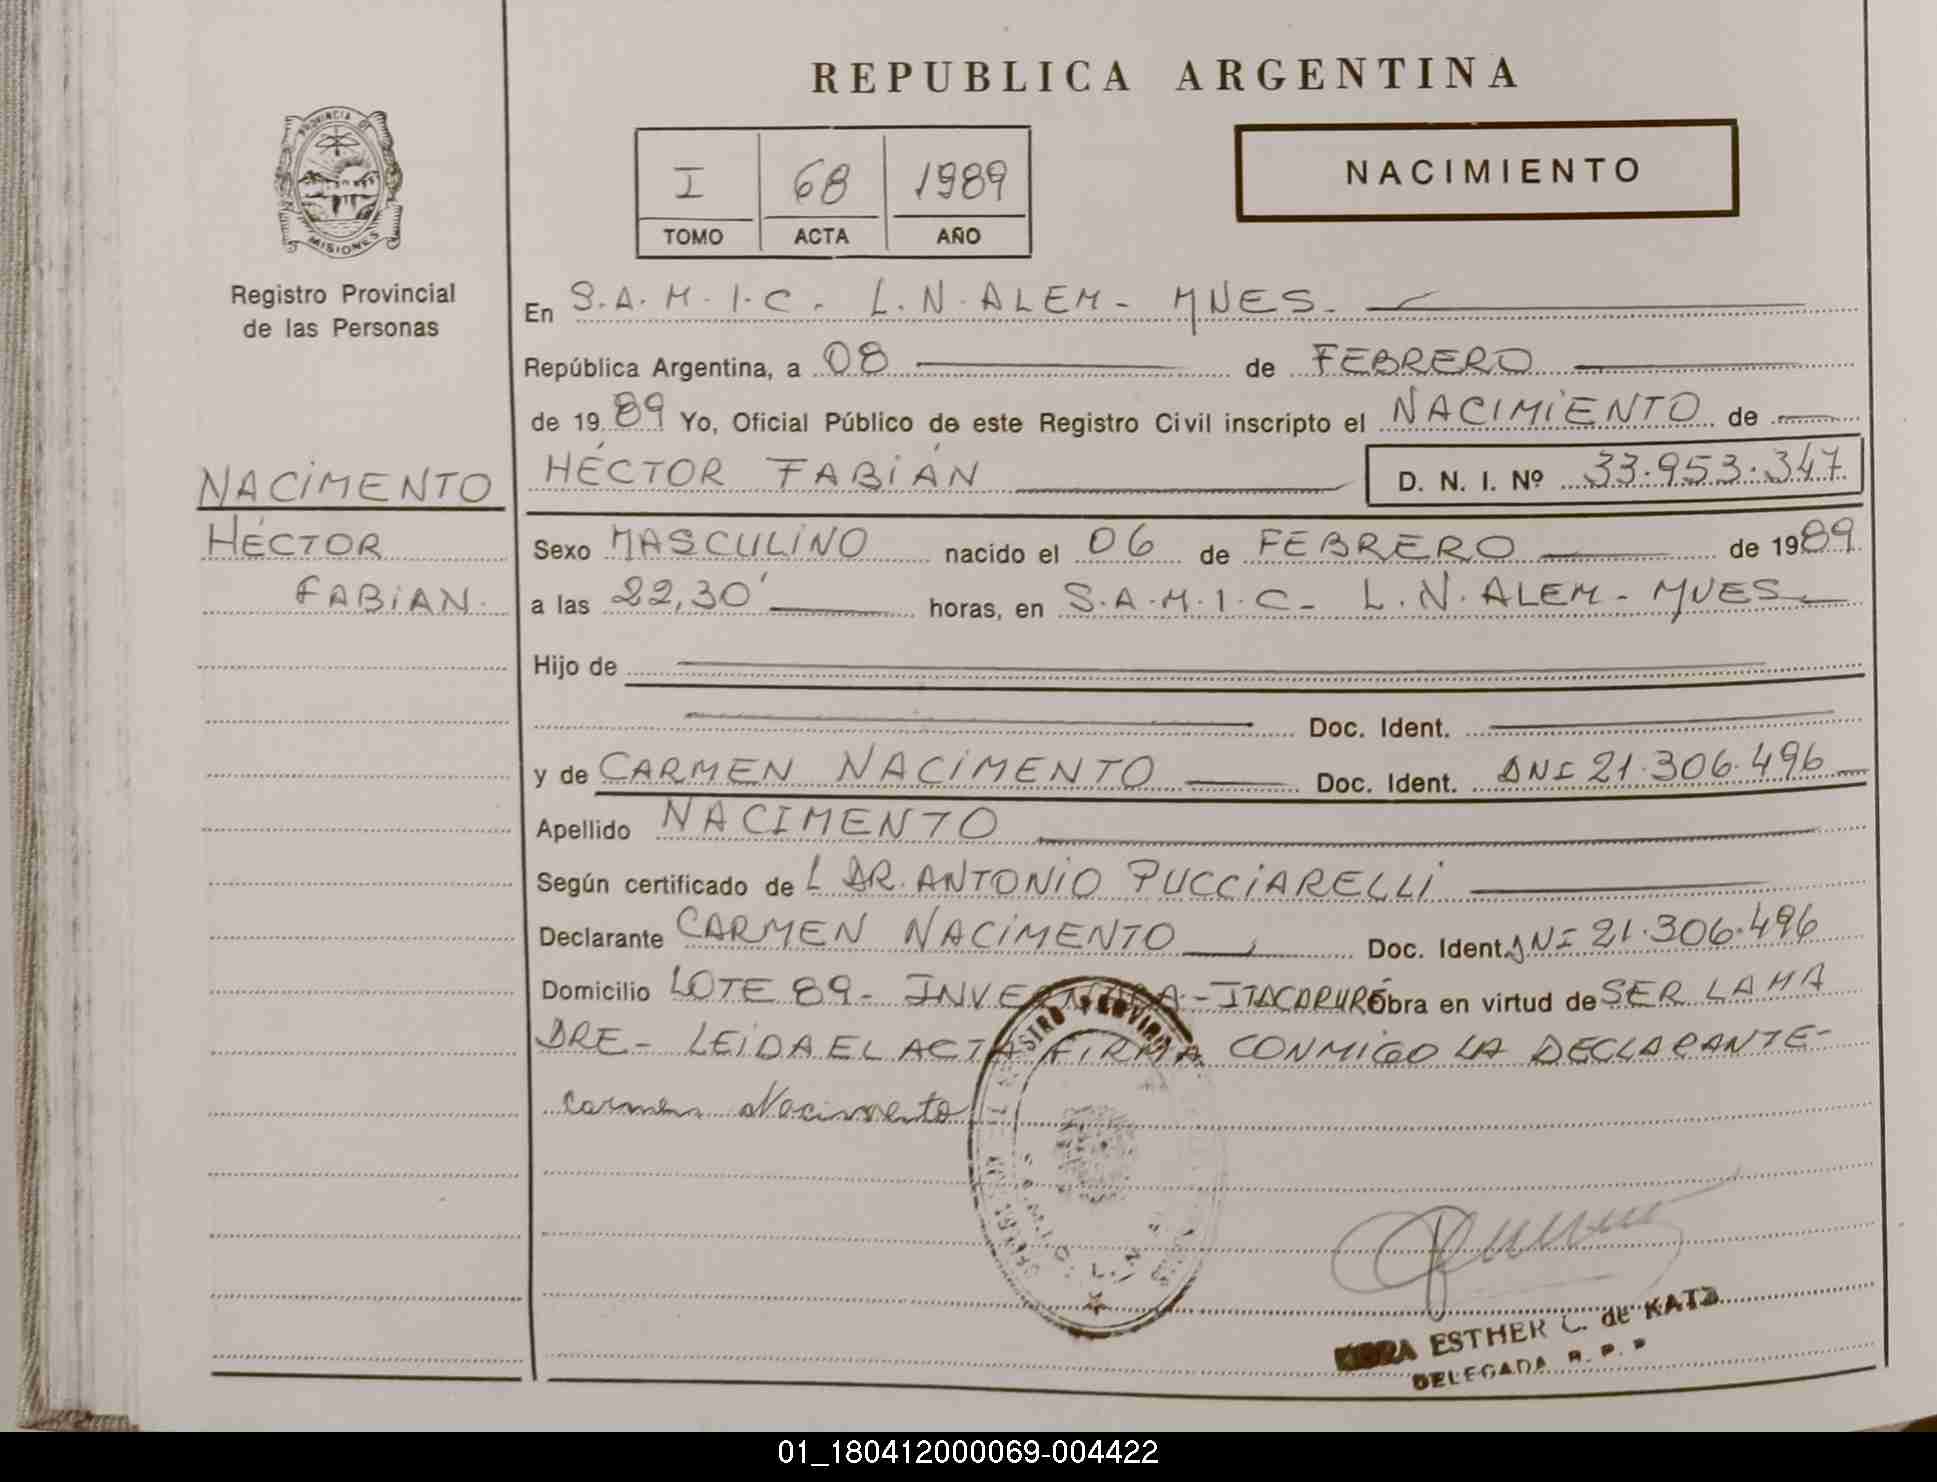 REPUBLICA ARGENTINA
PROVINCIA DE
MISIONES
Registro Provincial
de las Personas
I 68 1989
TOMO ACTA AÑO
NACIMIENTO
En S.A.M.I.C. L.N.ALEM- MNES.
República Argentina, a 08 de FEBRERO
de 1989 Yo, Oficial Público de este Registro Civil inscripto el NACIMIENTO de
NACIMENTO
HÉCTOR
FABIAN.
HÉCTOR FABIÁN D. N. I. Nº 33.953.347
Sexo MASCULINO nacido el 06 de FEBRERO de 1989
a las 22,30' horas, en S.A.M.I.C- L.N.ALEM- MNES
Hijo de
Doc. Ident.
y de CARMEN NACIMENTO Doc. Ident. DNI 21.306.496
Apellido NACIMENTO
Según certificado de L DR. ANTONIO PUCCIARELLI
Declarante CARMEN NACIMENTO Doc. Ident. DNI 21.306.496
Domicilio LOTE 89- INVERNADA-ITACARURÉ Obra en virtud de SER LA MA
DRE- LEIDA EL ACTA FIRMA CONMIGO LA DECLARANTE-
Carmen Nacimento
ESTHER C. de KATZ
DELEGADA R. P. P
01_180412000069-004422